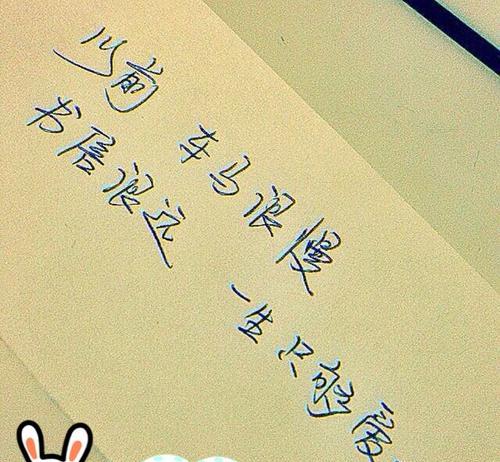 以前 车马很慢
书信很远
一生只够爱